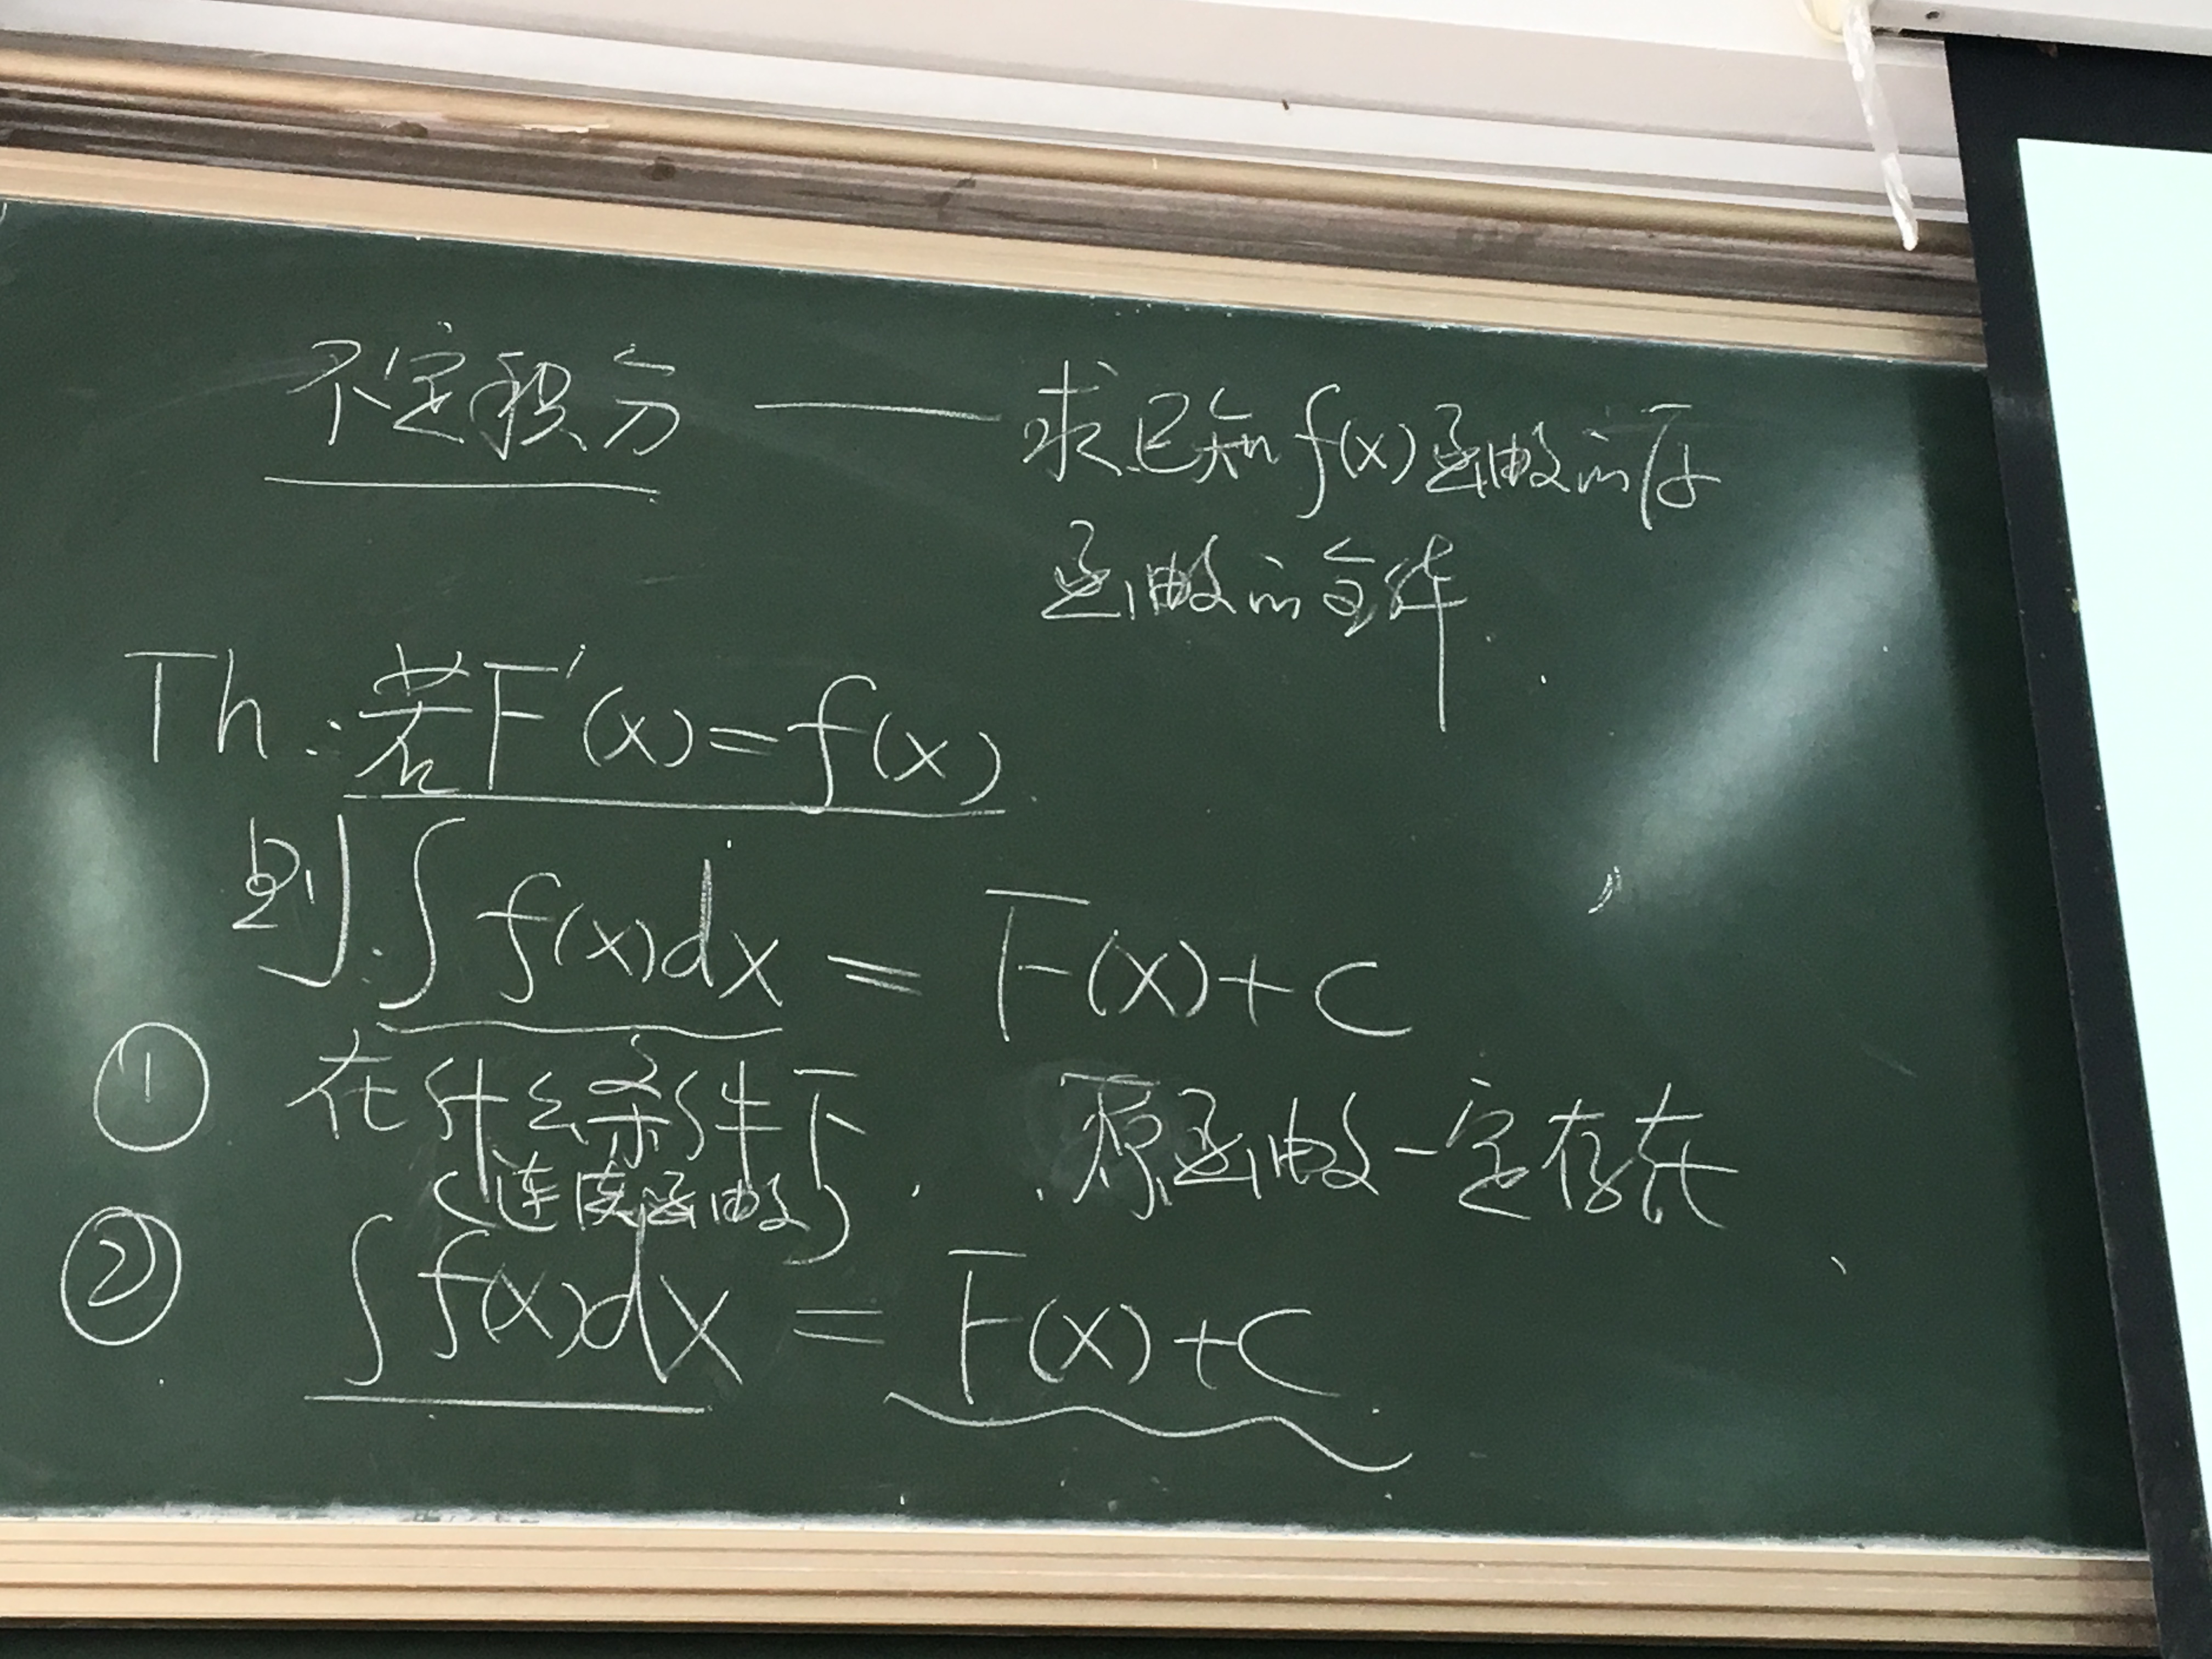 不定积分 —— 求已知f(x)函数的原
函数的全体.
Th:若F'(x)=f(x).
则:∫f(x)dx = F(x)+C
① 在什么条件下. 原函数一定存在
(连续函数)
② ∫f(x)dx = F(x)+C